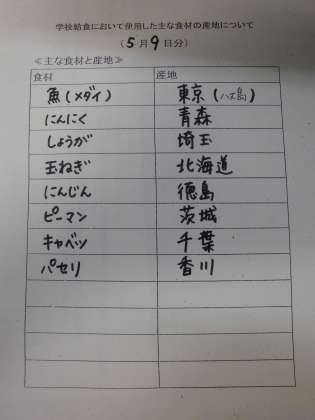 学校給食において使用した主な食材の産地について
（5月9日分）
≪主な食材と産地≫
食材 産地
魚(メダイ) 東京(八丈島)
にんにく 青森
しょうが 埼玉
玉ねぎ 北海道
にんじん 徳島
ピーマン 茨城
キャベツ 千葉
パセリ 香川